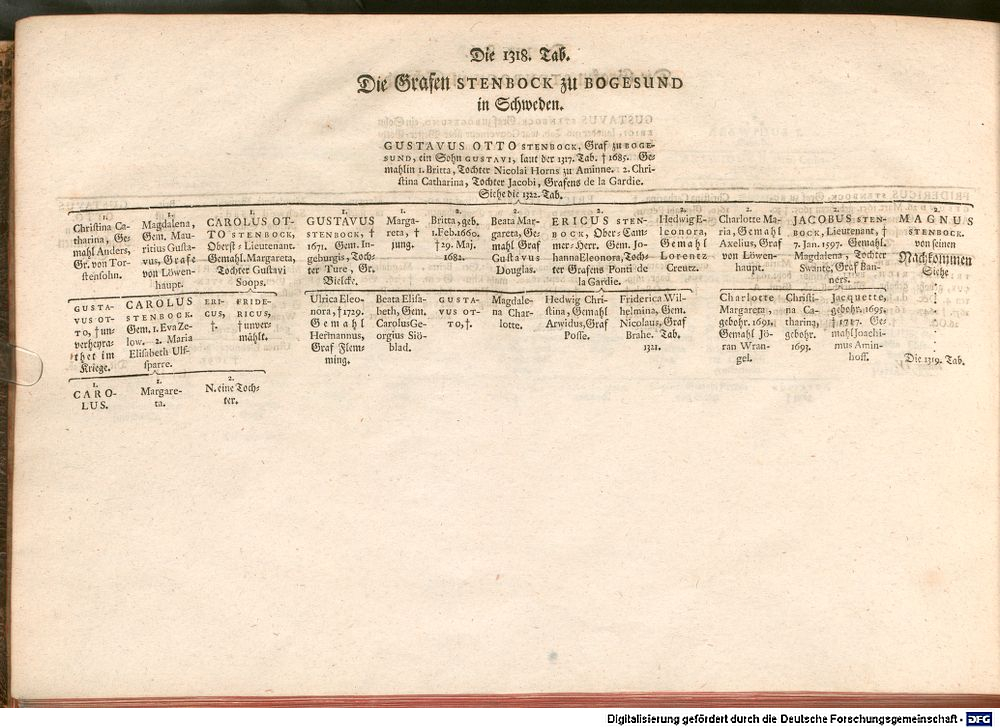 Die 1318. Tab.
Die Grafen STENBOCK zu BOGESUND
in Schweden.
GUSTAVUS OTTO STENBOCK, Graf zu BOGE-
SUND, ein Sohn GUSTAVI, laut der 1317. Tab. † 1685. Ge-
mahlin 1. Britta, Tochter Nicolai Horns zu Aminne. 2. Chri-
stina Catharina, Tochter Jacobi, Grafens de la Gardie.
Siehe die 1322. Tab.
1.
Christina Ca-
tharina, Ge-
mahl Anders,
Gr. von Tor-
stensohn.
1.
Magdalena,
Gem. Mau-
ritius Gusta-
vus, Grafe
von Löwen-
haupt.
1.
CAROLUS OT-
TO STENBOCK,
Oberst-Lieutenant.
Gemahl. Margareta,
Tochter Gustavi
Soops.
1.
GUSTAVUS
STENBOCK, †
1671. Gem. In-
geburgis, Toch-
ter Ture, Gr.
Bielcke.
1.
Marga-
reta, †
jung.
2.
Britta, geb.
1. Feb. 1660.
† 29. Maj.
1682.
2.
Beata Mar-
gareta, Ge-
mahl Graf
Gustavus
Douglas.
2.
ERICUS STEN-
BOCK, Ober-Cam-
mer-Herr. Gem. Jo-
hanna Eleonora, Toch-
ter Grafens Ponti de
la Gardie.
2.
Hedwig E-
leonora,
Gemahl
Lorentz
Creutz.
2.
Charlotte Ma-
ria, Gemahl
Axelius, Graf
von Löwen-
haupt.
2.
JACOBUS STEN-
BOCK, Lieutenant, †
7. Jan. 1597. Gemahl.
Magdalena, Tochter
Swante, Graf Ban-
ners.
2.
MAGNUS
STENBOCK.
von seinen
Nachkommen
Siehe
Die 1319. Tab.
GUSTA-
VUS OT-
TO, † un-
verheyra-
thet im
Kriege.
CAROLUS
STENBOCK.
Gem. 1. Eva Ze-
low. 2. Maria
Elisabeth Ulf-
sparre.
ERI-
CUS,
†.
FRIDE-
RICUS,
† unver-
mählt.
Ulrica Eleo-
nora, † 1729.
Gemahl
Hermannus,
Graf Flem-
ming.
Beata Elisa-
beth, Gem.
Carolus Ge-
orgius Siö-
blad.
GUSTA-
VUS OT-
TO, †.
Magdale-
na Char-
lotte.
Hedwig Chri-
stina, Gemahl
Arwidus, Graf
Posse.
Friderica Wil-
helmina, Gem.
Nicolaus, Graf
Brahe. Tab.
1321.
Charlotte
Margareta,
gebohr. 1691.
Gemahl Jö-
ran Wran-
gel.
Christi-
na Ca-
tharina,
gebohr.
1693.
Jacquette,
gebohr. 1695.
† 1717. Ge-
mahl Joachi-
mus Amin-
hoff.
1.
CARO-
LUS.
1.
Margare-
ta.
2.
N. eine Toch-
ter.
Digitalisierung gefördert durch die Deutsche Forschungsgemeinschaft - DFG